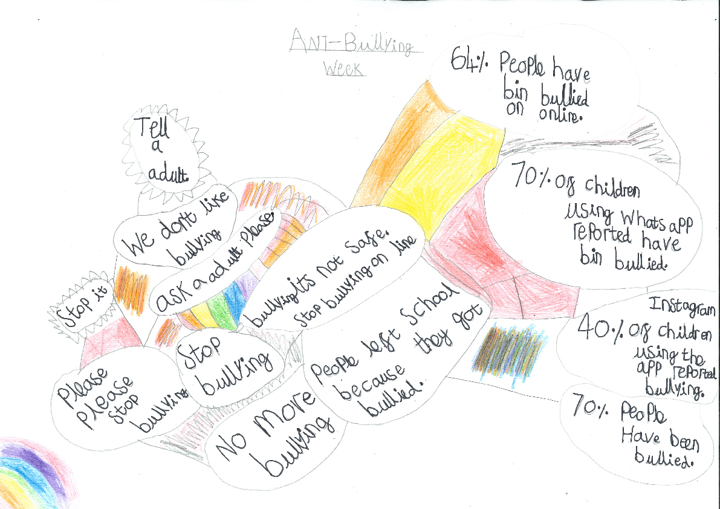 ANI-Bullying
Week
64% People have
bin bullied
on online.
Tell
a
adult.
70% of children
using Whatsapp
reported have
bin bullied.
We don't like
bullying
ask a adult please
Stop it
bullying It's not safe.
Stop bullying on line
Instagram
40% of children
using the
app reported
bullying.
People left School
because they got
bullied.
Stop
bullying
Please
please
stop
bullying
No More
bullying
70% People
Have been
bullied.